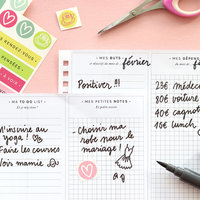 RENDEZ-VOUS
À VOIR
• MES BUTS •
février
Positiver !!!
• MES DÉPENSES
février
23€ médec
80€ voiture
40€ cagnot
16€ lunch
• MA TO DO LIST •
M'inscrire au
yoga !
Faire les courses
Voir mamie
• MES PETITES NOTES •
Choisir ma
robe pour le
mariage !